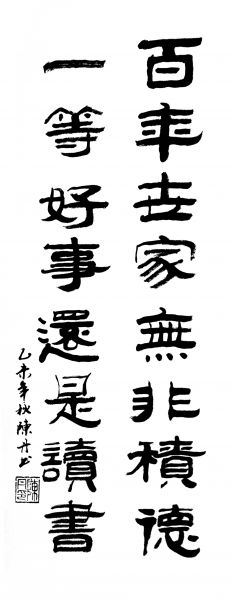 百年世家無非積德
一等好事還是讀書
乙未年秋陳丹书